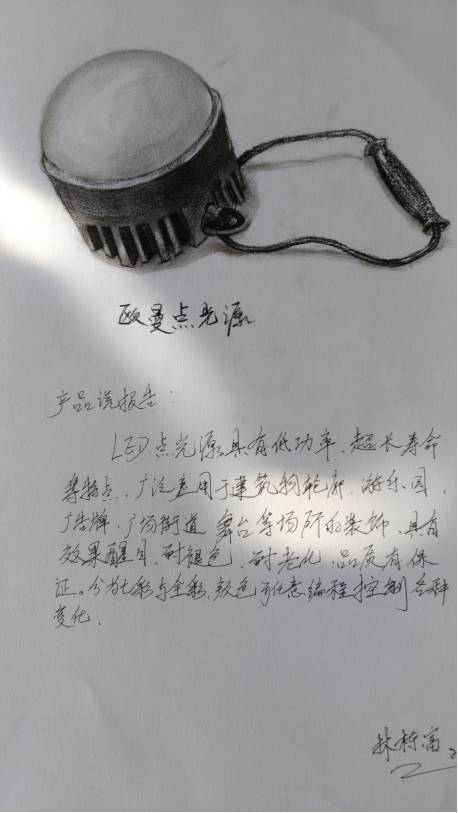 欧曼点光源
产品说报告：
LED点光源具有低功率、超长寿命
等特点、广泛应用于建筑物轮廓、游乐园、
广告牌、广场街道、舞台等场所的装饰、具有
效果醒目、耐褪色、耐老化、品质有保
证。分为七彩与全彩，颜色可任意编程控制各种
变化、
林